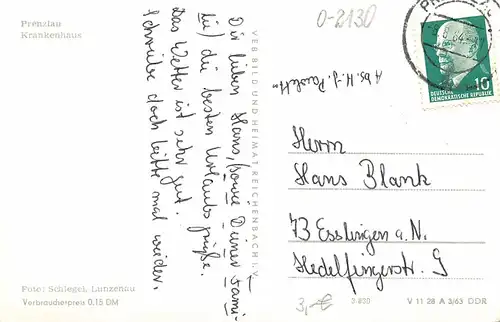 Prenzlau
Krankenhaus
O-2130
DEUTSCHE
DEMOKRATISCHE REPUBLIK
10
Abs. H.-J.
Dir lieben Hans, (sowie Deiner Fami-
lie) die besten Urlaubsgrüße.
Das Wetter ist sehr gut.
Schreibe doch bitte mal wieder.
VEB BILD UND HEIMAT REICHENBACH I. V.
Herrn
Hans Blank
73 Esslingen a. N.
Hedelfingerstr. 9
Foto: Schlegel, Lunzenau
Verbraucherpreis 0.15 DM
3,-€
V 11 28 A 3/63 DDR